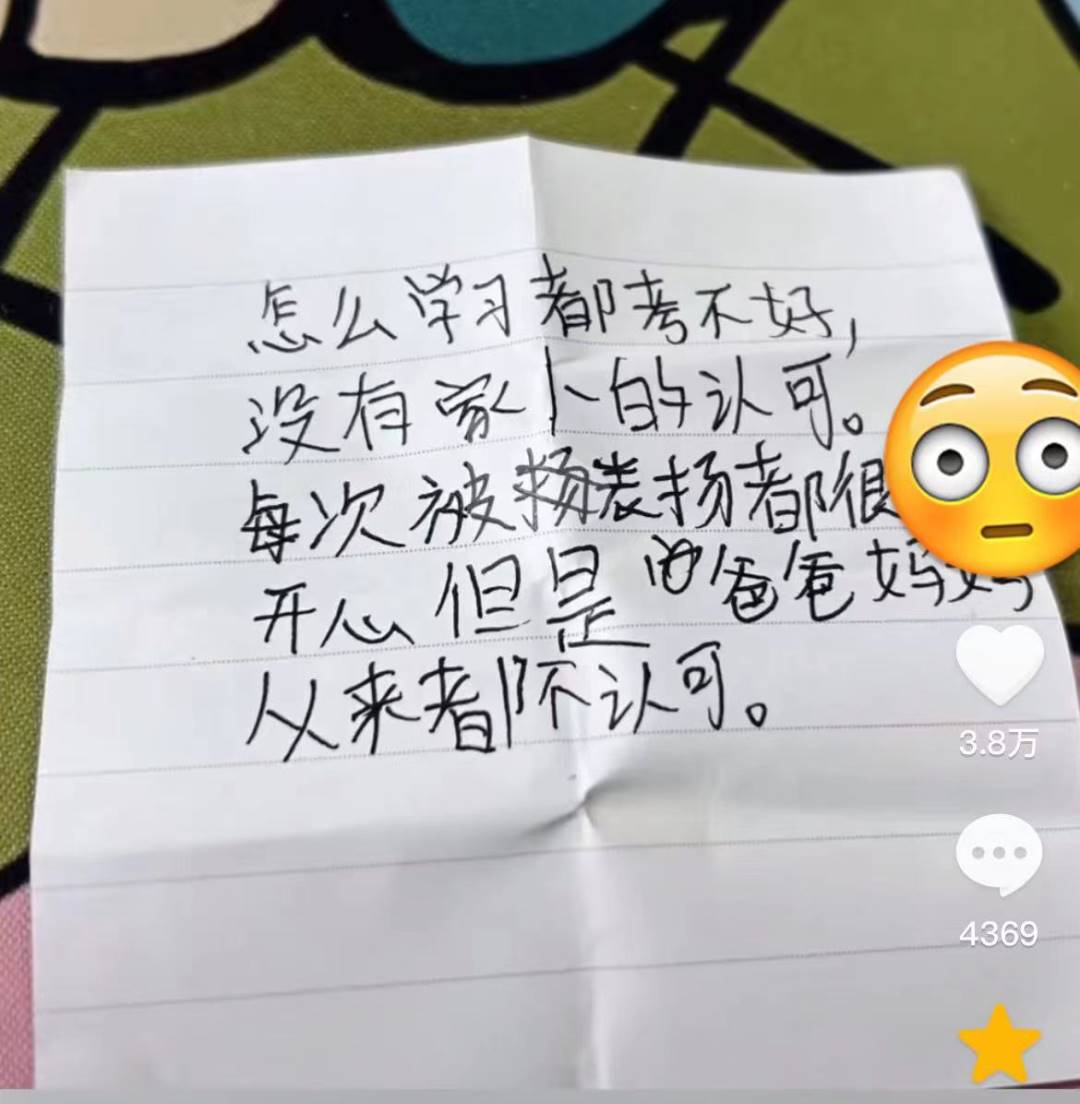 怎么学习都考不好，
没有家人的认可。
每次被表扬都很
开心但是爸爸妈妈
从来都不认可。
3.8万
4369